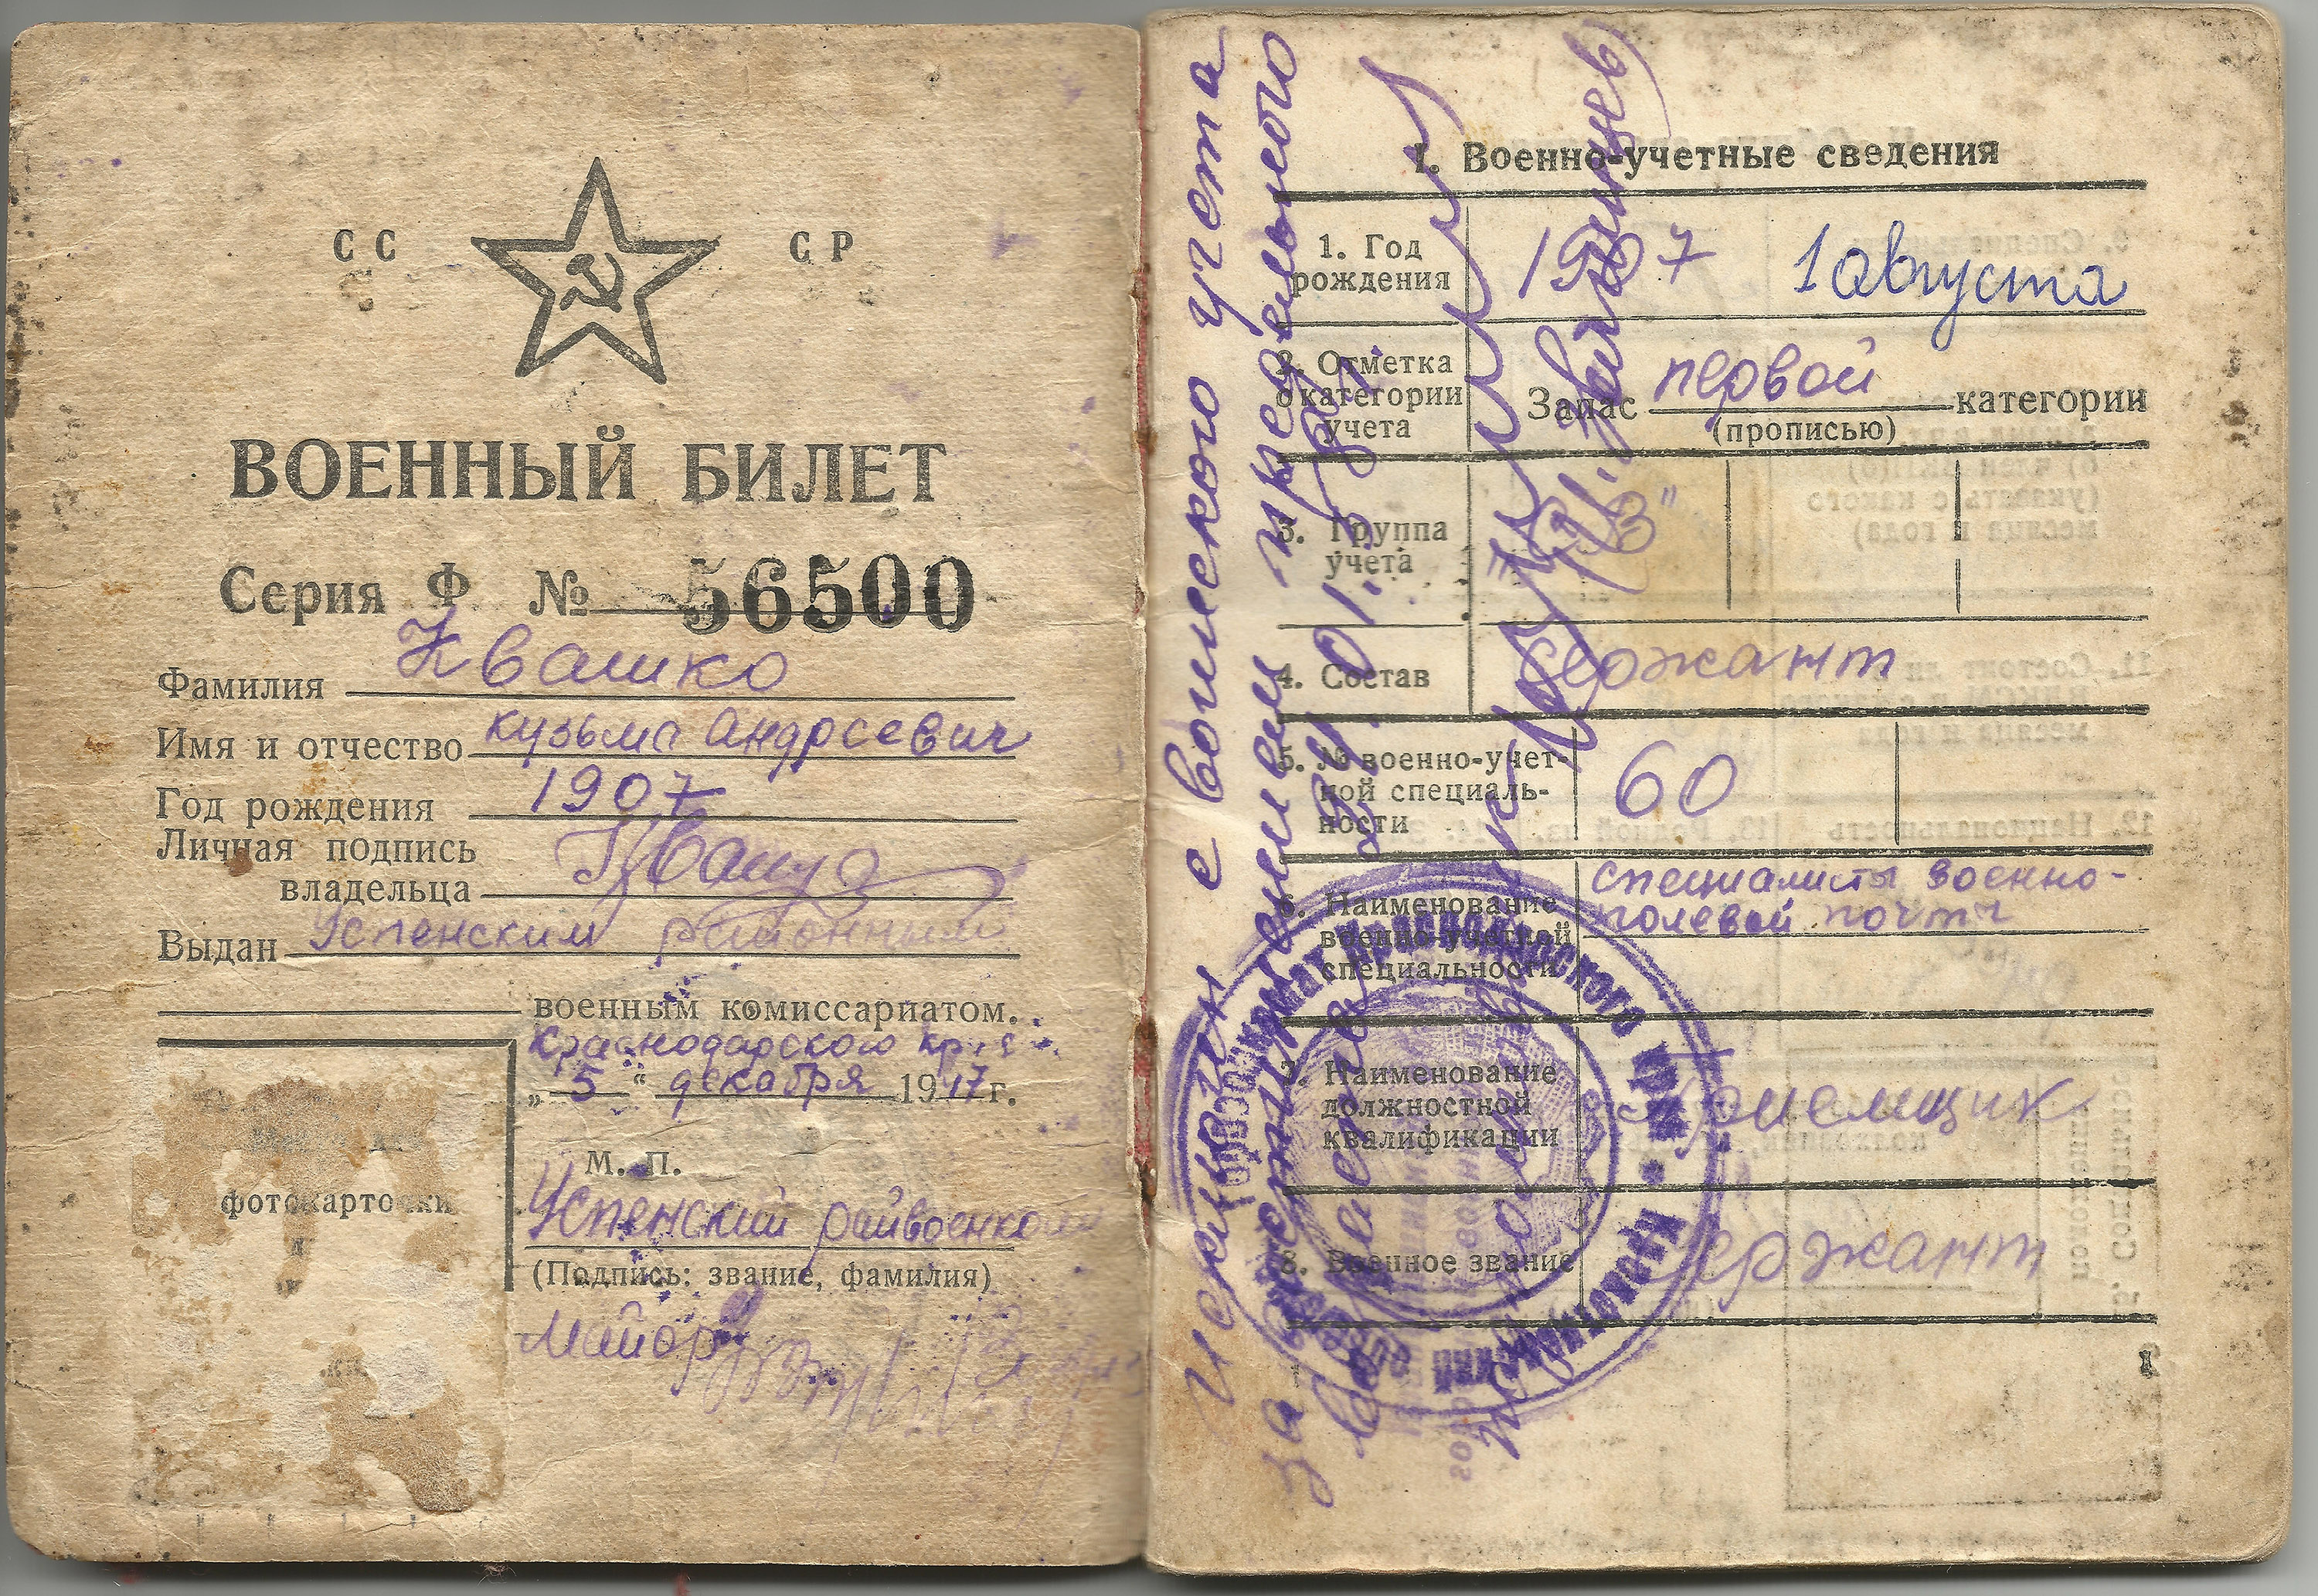 СС СР
ВОЕННЫЙ БИЛЕТ
Серия Ф № 56500
Фамилия Квашко
Имя и отчество Кузьма Андреевич
Год рождения 1907
Личная подпись
владельца
Выдан Успенским районным
военным комиссариатом.
Краснодарского края
„5“ декабря 1947 г.
М. П.
фотокарточки
Успенский райвоенком
(Подпись: звание, фамилия)
Майор
I. Военно-учетные сведения
1. Год
рождения
1907 1 августа
2. Отметка
о категории
учета
Запас первой категории
(прописью)
3. Группа
учета
4. Состав
сержант
5. № военно-учет-
ной специаль-
ности
60
6. Наименование
военно-учетной
специальности
специалисты военно-
полевой почты
7. Наименование
должностной
квалификации
Приемщик
8. Военное звание
Сержант
1
с воинского учета
за
предельного
Краснодарского края